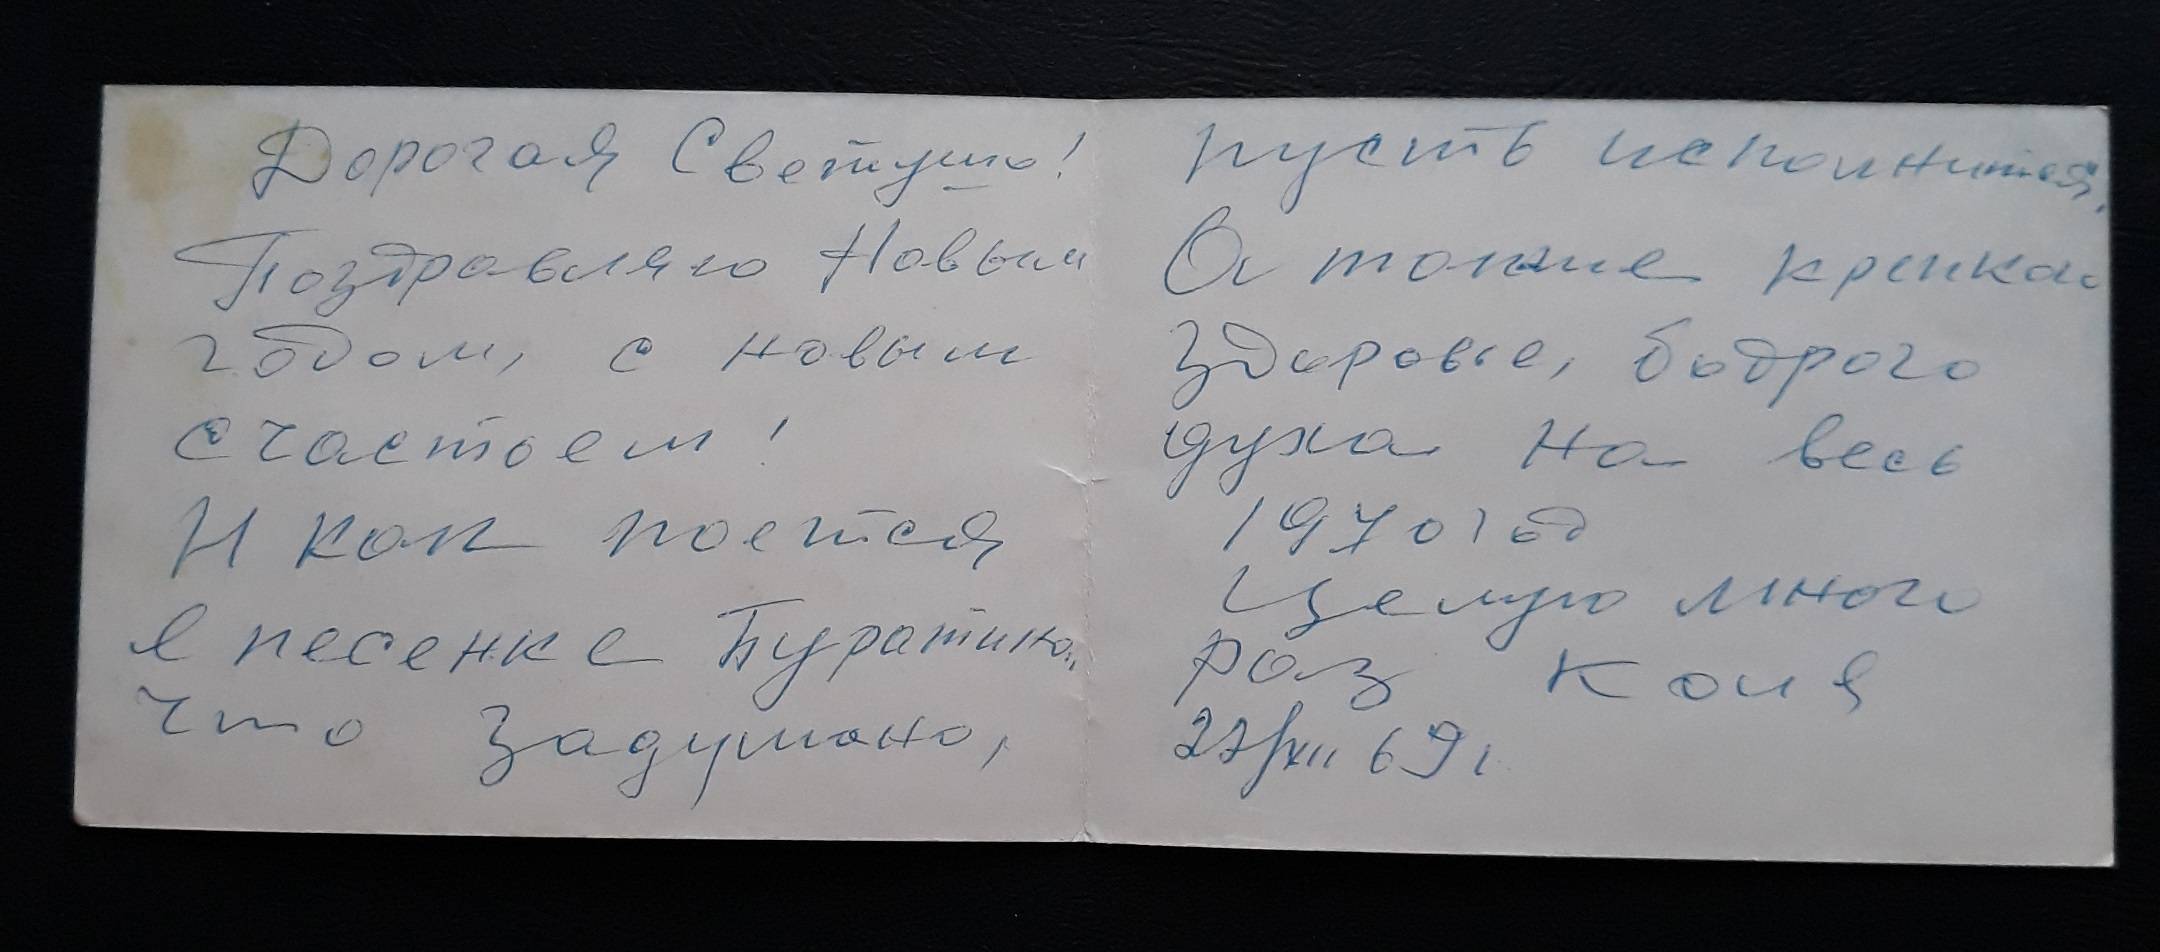 Дорогая Светушо!
Поздравляю Новым
годом, с новым
счастьем!
И как поется
в песенке Буратино.,
Что задумано,
пусть исполнится,
А также крепкого
здоровье, бодрого
духа на весь
1970 год
Целую много
раз Коля
27/XII 69 г.